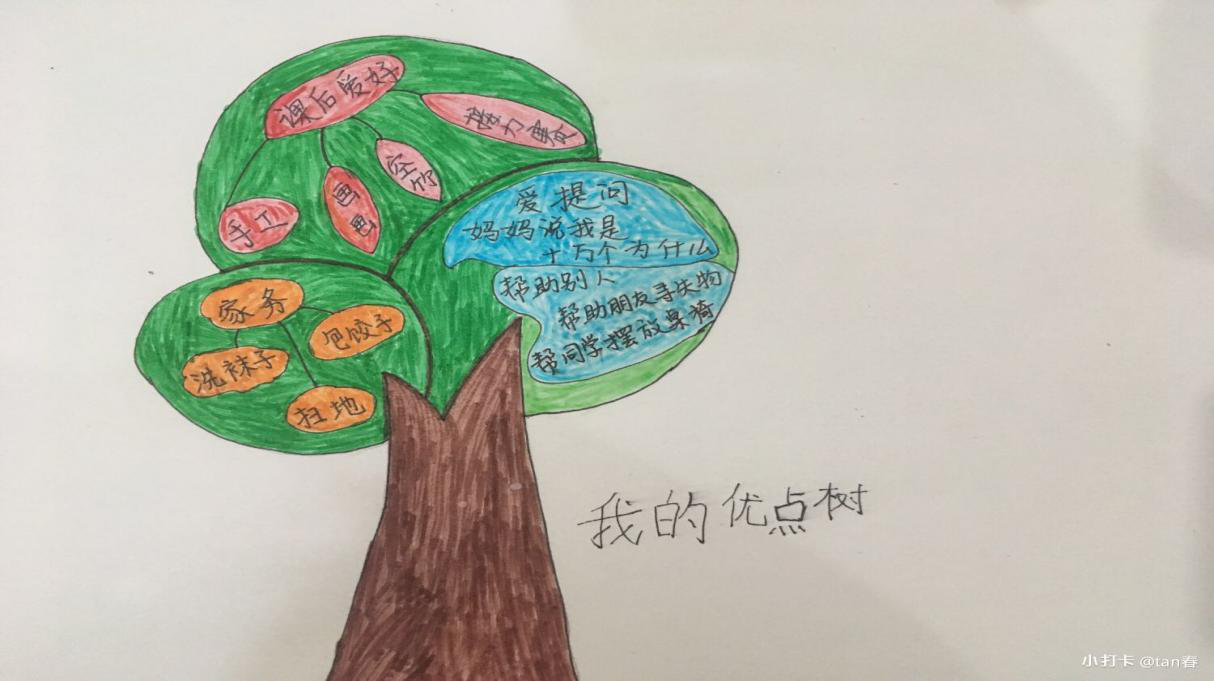 课后爱好
接力赛
空竹
画画
手工
爱提问
妈妈说我是
十万个为什么
帮助别人
帮助朋友寻失物
帮同学摆放桌椅
家务
包饺子
洗袜子
扫地
我的优点树
小打卡 @tan春